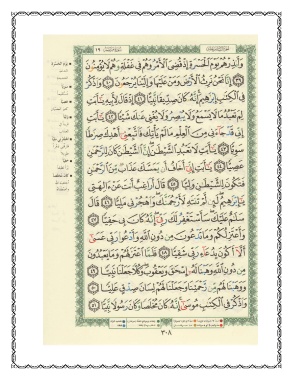 وَأَنذِرْهُمْ يَوْمَ الْحَسْرَةِ إِذْ قُضِيَ الْأَمْرُ وَهُمْ فِي غَفْلَةٍ وَهُمْ لَا يُؤْمِنُونَ
٣٩ إِنَّا نَحْنُ نَرِثُ الْأَرْضَ وَمَنْ عَلَيْهَا وَإِلَيْنَا يُرْجَعُونَ ٤٠ وَاذْكُرْ
فِي الْكِتَٰبِ إِبْرَٰهِيمَ إِنَّهُ كَانَ صِدِّيقًا نَّبِيًّا ٤١ إِذْ قَالَ لِأَبِيهِ يَٰٓأَبَتِ
لِمَ تَعْبُدُ مَا لَا يَسْمَعُ وَلَا يُبْصِرُ وَلَا يُغْنِي عَنكَ شَيْئًا ٤٢ يَٰٓأَبَتِ
إِنِّي قَدْ جَآءَنِي مِنَ الْعِلْمِ مَا لَمْ يَأْتِكَ فَاتَّبِعْنِي أَهْدِكَ صِرَٰطًا
سَوِيًّا ٤٣ يَٰٓأَبَتِ لَا تَعْبُدِ الشَّيْطَٰنَ إِنَّ الشَّيْطَٰنَ كَانَ لِلرَّحْمَٰنِ
عَصِيًّا ٤٤ يَٰٓأَبَتِ إِنِّي أَخَافُ أَن يَمَسَّكَ عَذَابٌ مِّنَ الرَّحْمَٰنِ
فَتَكُونَ لِلشَّيْطَٰنِ وَلِيًّا ٤٥ قَالَ أَرَاغِبٌ أَنتَ عَنْ ءَالِهَتِي
يَٰٓإِبْرَٰهِيمُ لَئِن لَّمْ تَنتَهِ لَأَرْجُمَنَّكَ وَاهْجُرْنِي مَلِيًّا ٤٦ قَالَ
سَلَٰمٌ عَلَيْكَ سَأَسْتَغْفِرُ لَكَ رَبِّي إِنَّهُ كَانَ بِي حَفِيًّا ٤٧
وَأَعْتَزِلُكُمْ وَمَا تَدْعُونَ مِن دُونِ اللَّهِ وَأَدْعُوا رَبِّي عَسَىٰٓ
أَلَّآ أَكُونَ بِدُعَآءِ رَبِّي شَقِيًّا ٤٨ فَلَمَّا اعْتَزَلَهُمْ وَمَا يَعْبُدُونَ
مِن دُونِ اللَّهِ وَهَبْنَا لَهُ إِسْحَٰقَ وَيَعْقُوبَ وَكُلًّا جَعَلْنَا نَبِيًّا ٤٩
وَوَهَبْنَا لَهُم مِّن رَّحْمَتِنَا وَجَعَلْنَا لَهُمْ لِسَانَ صِدْقٍ عَلِيًّا ٥٠
وَاذْكُرْ فِي الْكِتَٰبِ مُوسَىٰٓ إِنَّهُ كَانَ مُخْلَصًا وَكَانَ رَسُولًا نَّبِيًّا ٥١
٣٠٨